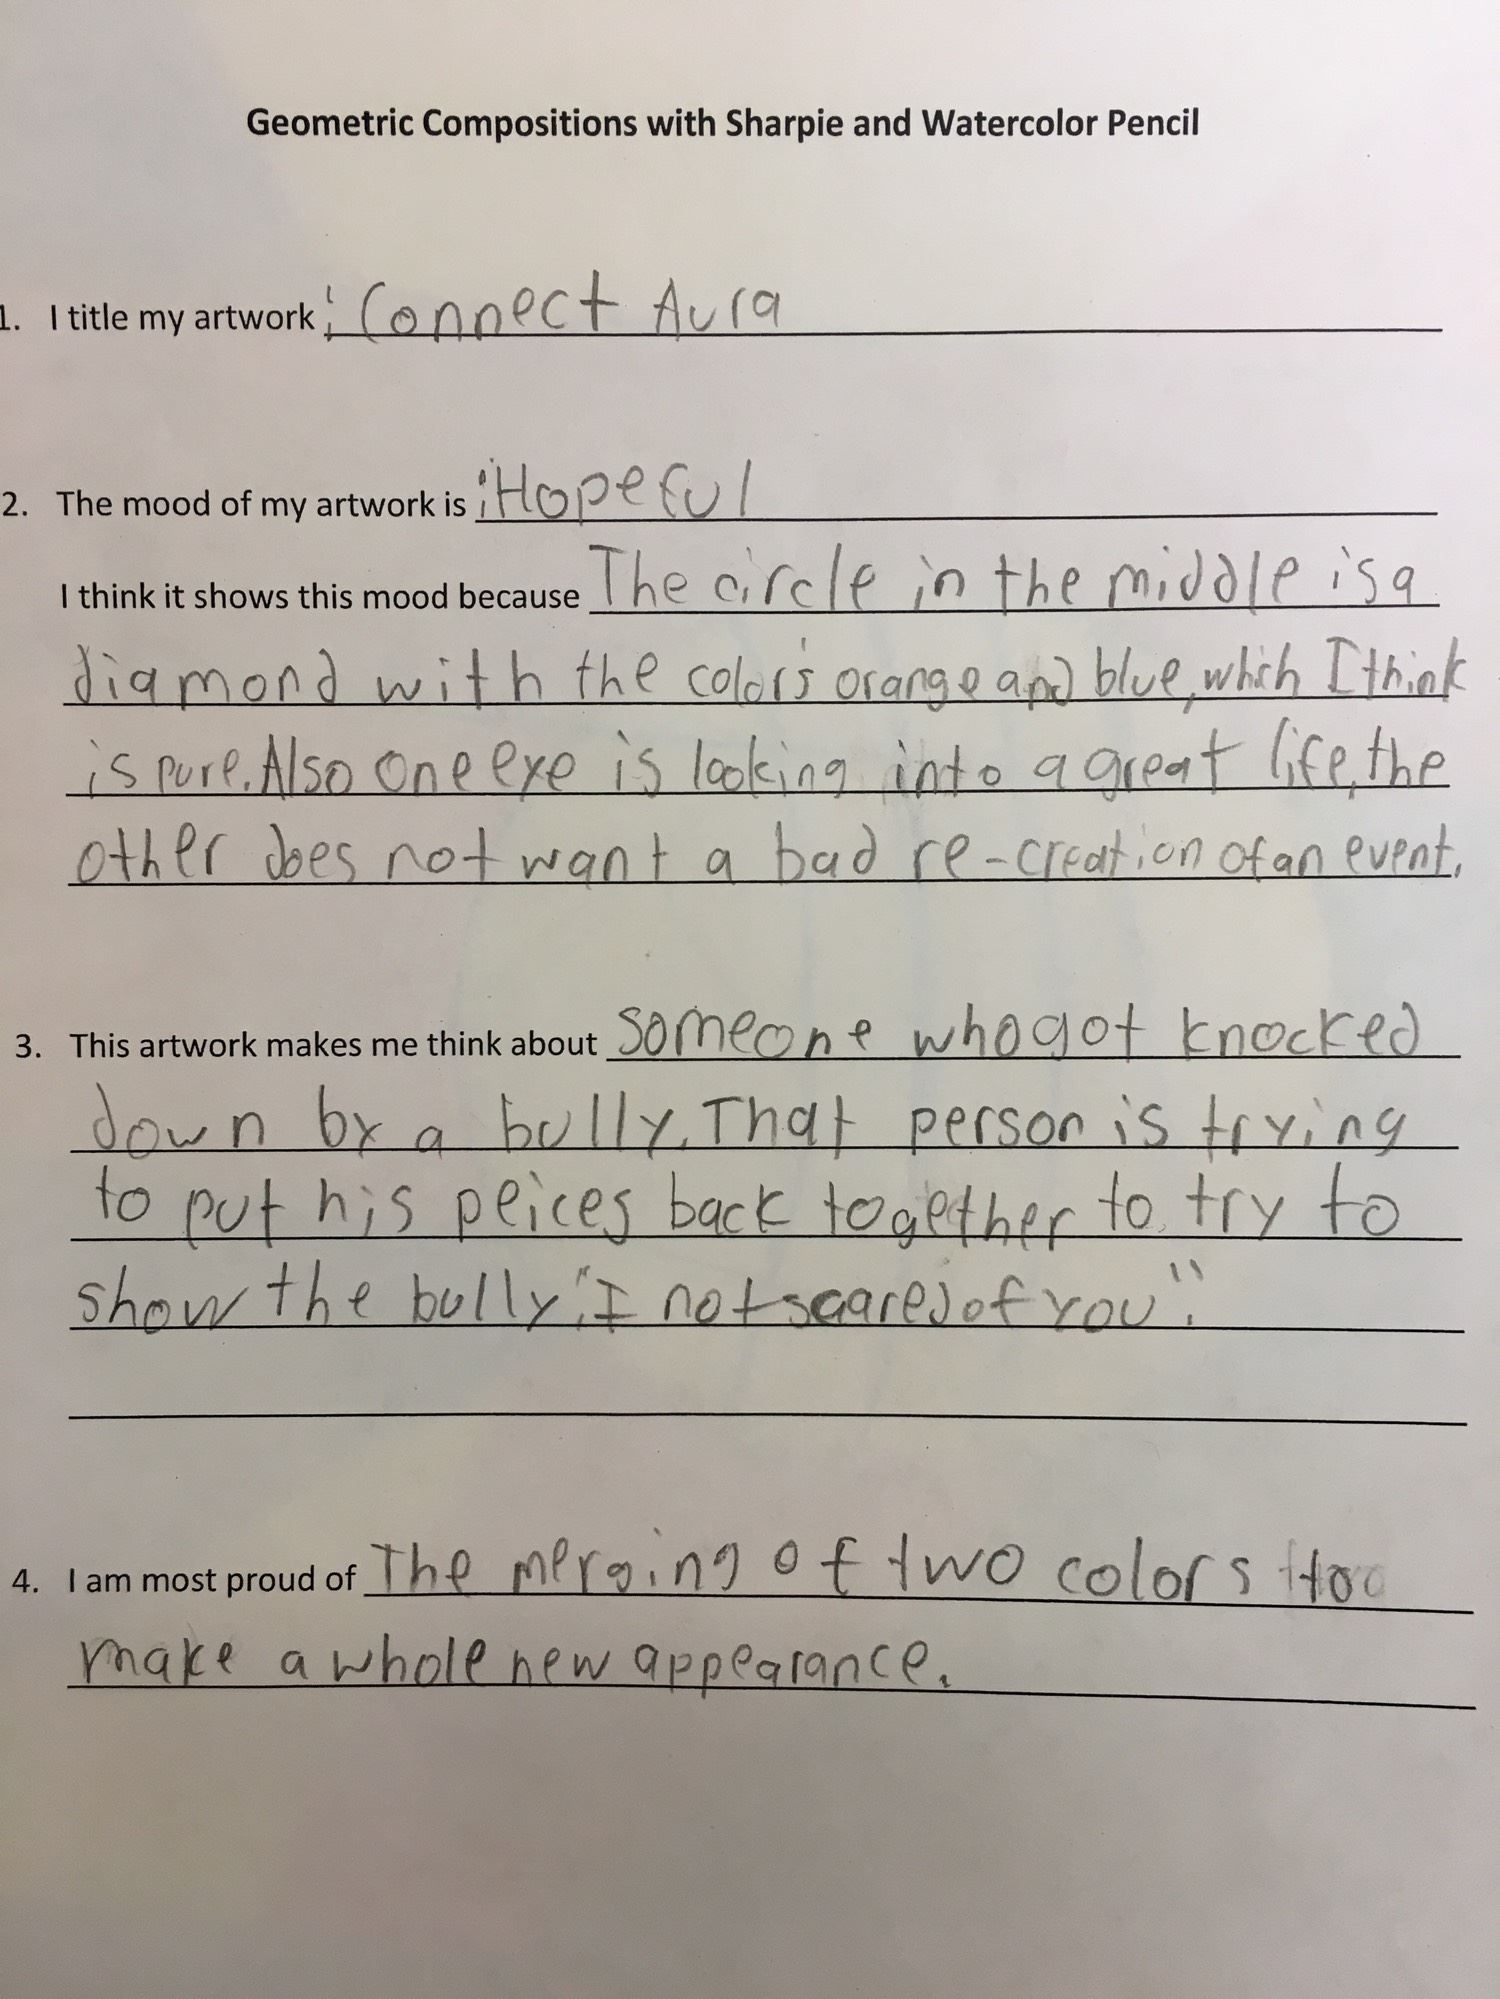 Geometric Compositions with Sharpie and Watercolor Pencil
1. I title my artwork : Connect Aura
2. The mood of my artwork is : Hopeful
I think it shows this mood because The circle in the middle is a
diamond with the color's orange and blue, which I think
is pure. Also one eye is looking into a great life, the
other does not want a bad re-creation of an event.
3. This artwork makes me think about someone who got knocked
down by a bully. That person is trying
to put his peices back together to try to
show the bully, "I not scared of you".
4. I am most proud of The merging of two colors to
make a whole new appearance.